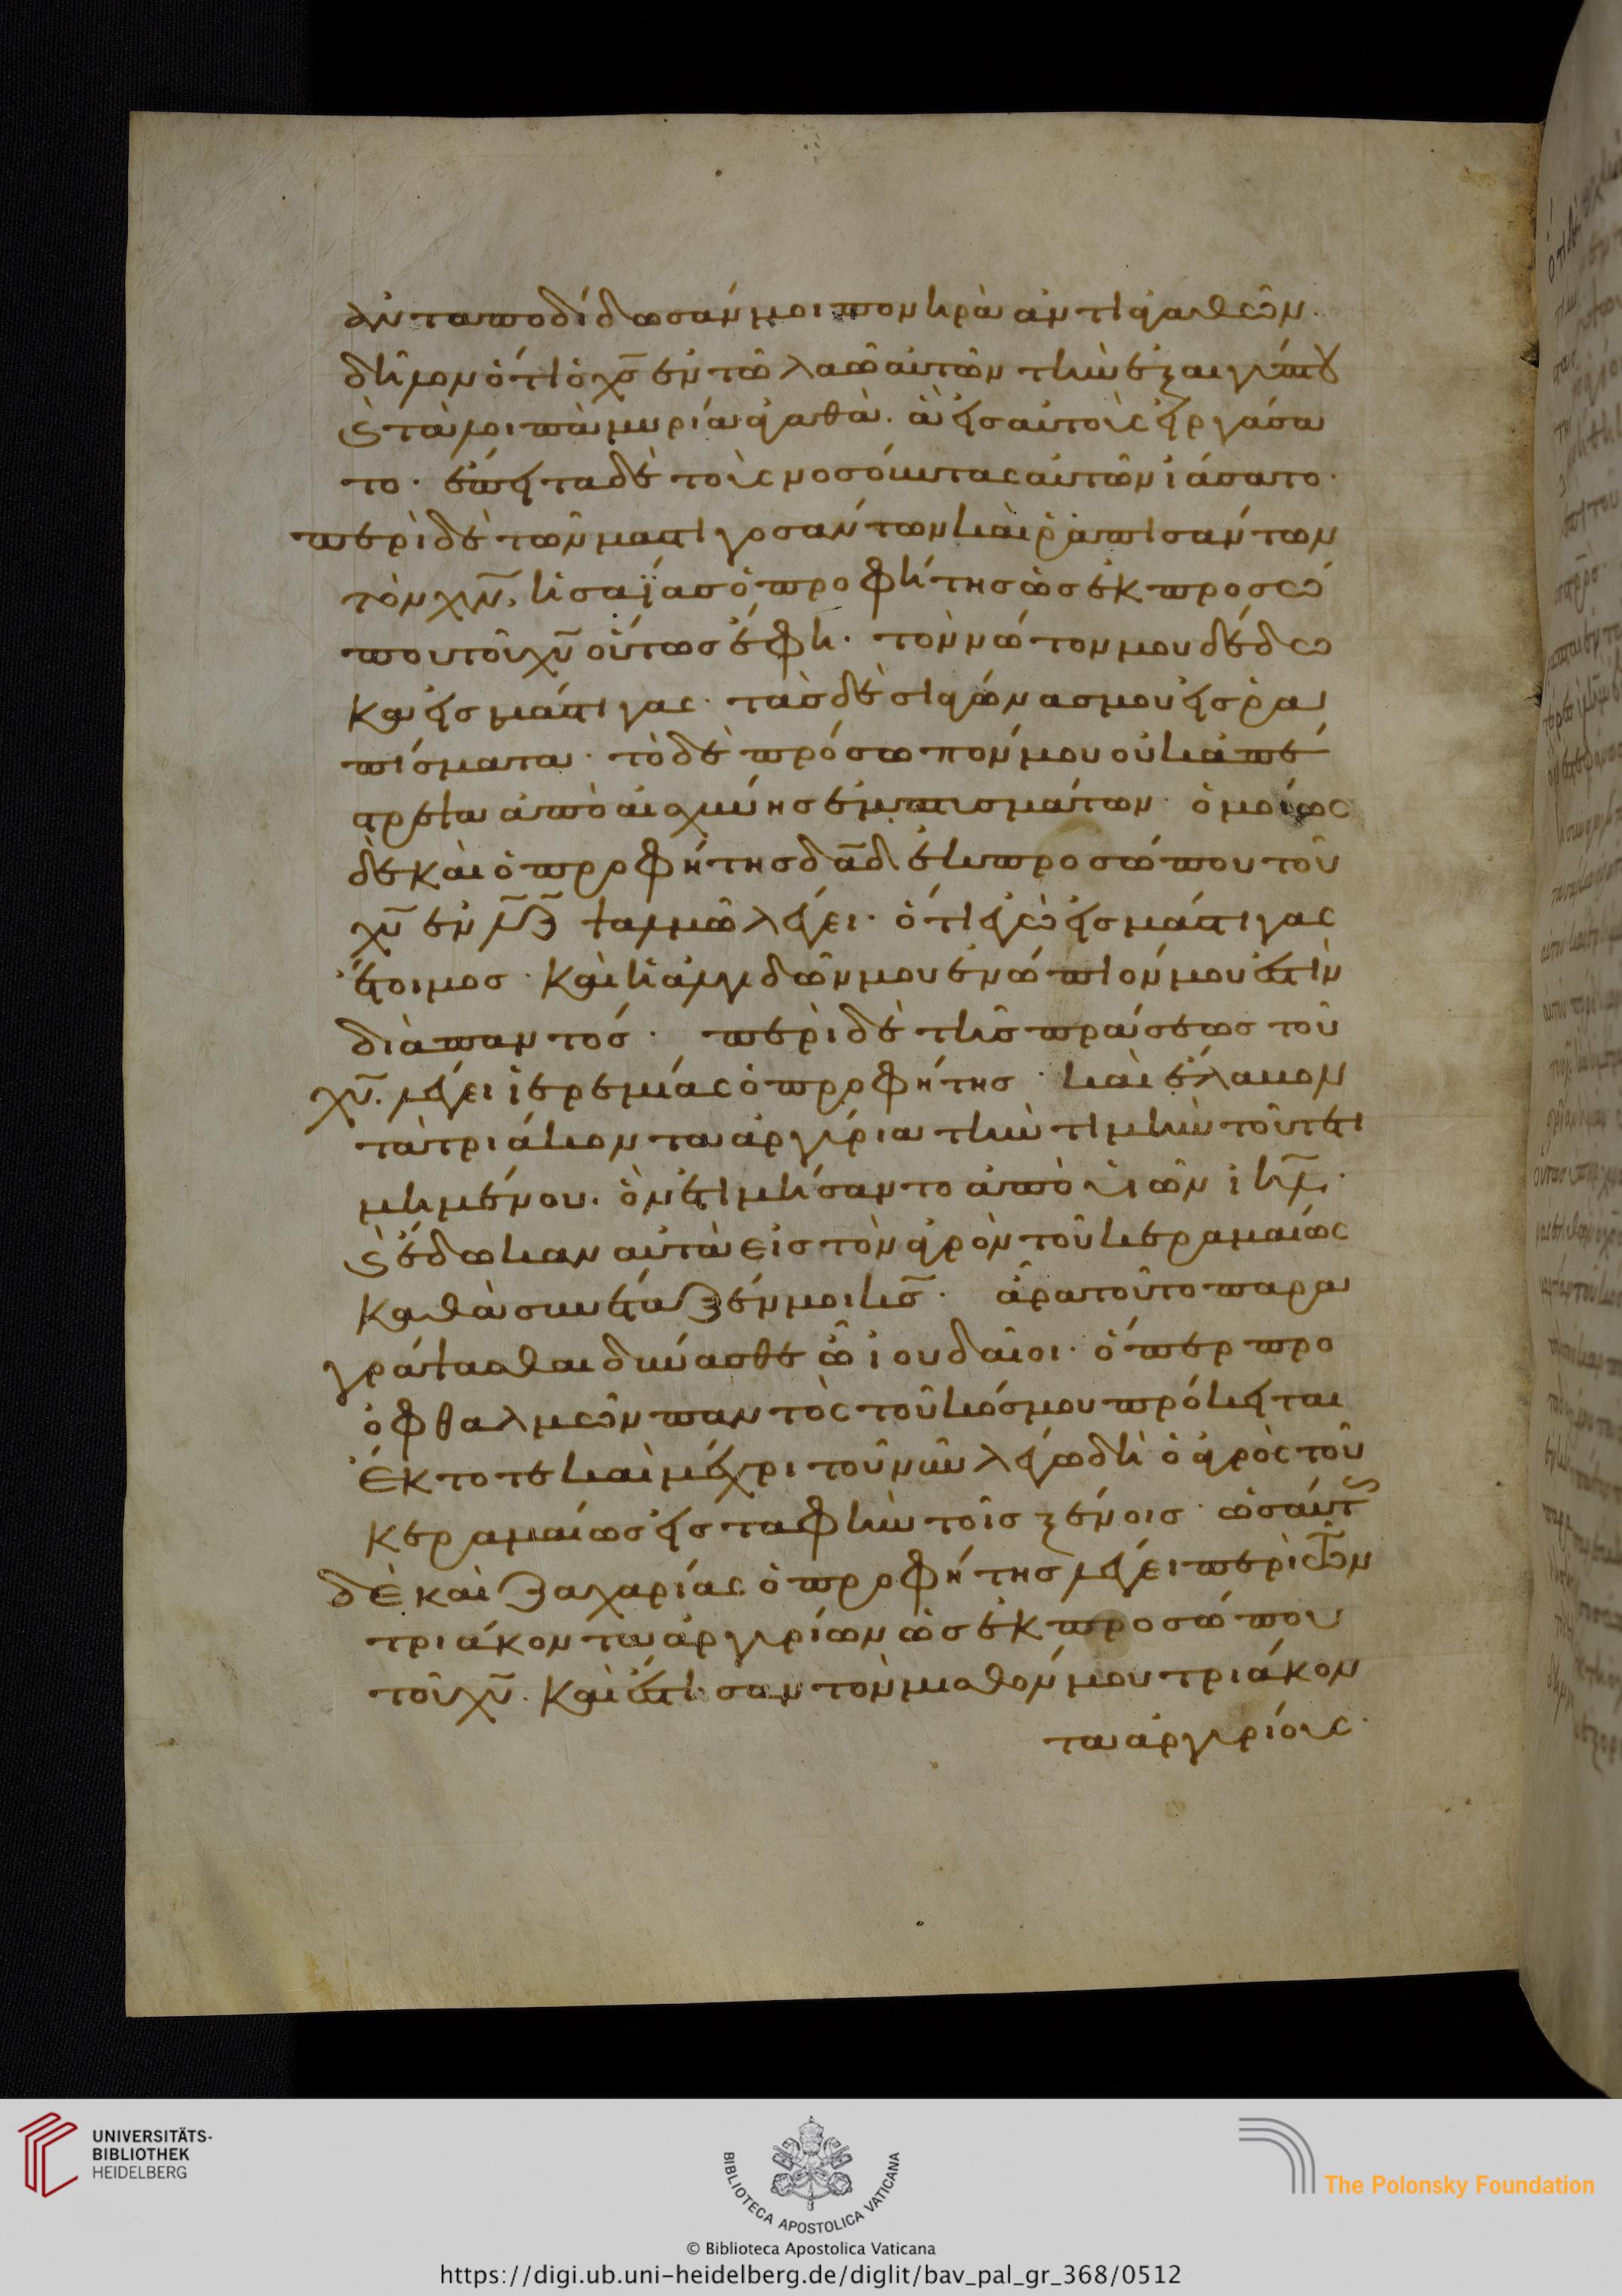 ἀνταποδίδωσάν μοι πονηρὰ ἀντὶ ἀγαθῶν.
δῆλον ὅτι ὁ χς̄ ἐν τῶ λαῶ αὐτῶν τὴν ἐξ αιγύπτου
καὶ τὰ λοιπὰ μυρία ἀγαθὰ. ἃ εἰς αὐτοὺς εἰργάσα
το. ἔπειτα δὲ τοὺς νοσοῦντας αὐτῶν ἰάσατο.
περὶ δὲ τῶν μαστιγοσάντων καὶ ῥαπισάντων
τὸν χν̄, ἡσαΐασ ὁ προφήτησ ὡσ ἐκ προσώ
που τοῦ χῡ οὕτωσ ἔφη. τὸν νώτον μου δέδω
κα εἰσ μάστιγας. τὰσ δὲ σιαγώνασ μου εἰσ ρα
πίσματα. τὸ δὲ πρόσωπόν μου οὐκ ἀπέ
στρεψα ἀπὸ αἰσχύνησ ἐμπτισμάτων. ὁμοίως
δὲ καὶ ὁ προφήτησ δᾱδ ἐκ προσώπου τοῦ
χῡ ἐν λ̄ζ̄ ψαλμῶ λέγει. ὅτι ἐγὼ εἰσ μάστιγας
ἕτοιμοσ. καὶ ἡ ἀλγιδών μου ἐνώπιόν μου ἐστὶν
διὰ παντόσ. περὶ δὲ τῆσ πράσεωσ τοῦ
χῡ. λέγει ἱερεμίας ὁ προφήτησ. καὶ ἔλαβον
τὰ τριάκοντα ἀργύρια τὴν τιμὴν τοῦ τετι
μημένου. ὃν ἐτιμήσαντο ἀπὸ υἱῶν ἰη̄λ.
καὶ ἔδωκαν αὐτὰ εἰσ τὸν ἀγρὸν τοῦ κεραμαίως
καθὰ συνέταξέν μοι κς̄. ἆρα τοῦτο παρα
γράψασθαι δύνασθε ὦ ἰουδαῖοι. ὅπερ προ
ὀφθαλμῶν παντὸς τοῦ κόσμου πρόκειται
ἔκτοτε καὶ μέχρι τοῦ νῦν λέγω δὴ ὁ ἀγρὸς τοῦ
κεραμαίωσ εἰσ ταφὴν τοῖσ ξένοισ. ὡσαύτως
δὲ καὶ ζαχαρίας ὁ προφήτησ λέγει περὶ τῶν
τριάκοντα ἀργυρίων ὡσ ἐκ προσώπου
τοῦ χῡ. καὶ ἔστησαν τὸν μισθόν μου τριάκον
τα ἀργυρίους.
UNIVERSITÄTS-
BIBLIOTHEK
HEIDELBERG
BIBLIOTECA APOSTOLICA VATICANA
The Polonsky Foundation
© Biblioteca Apostolica Vaticana
https://digi.ub.uni-heidelberg.de/diglit/bav_pal_gr_368/0512